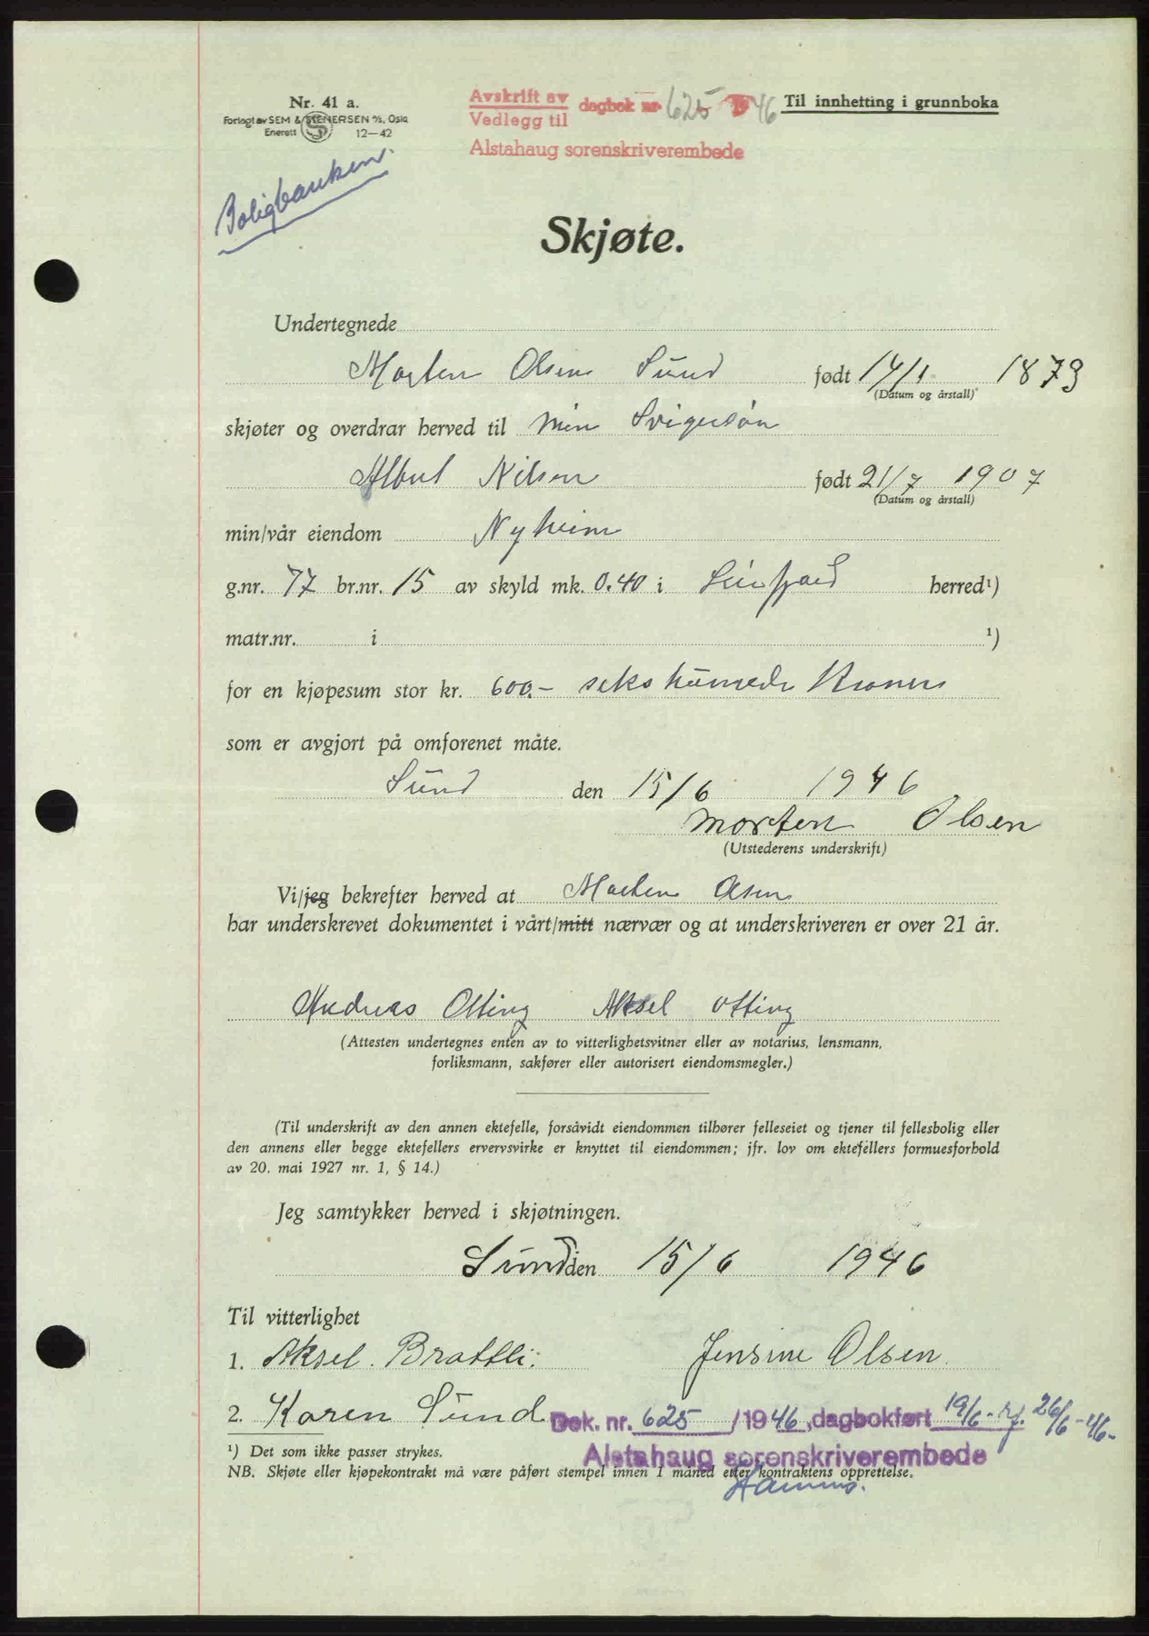 Nr. 41 a.
Forlagt av SEM & STENERSEN A/S, Oslo
Enerett 12—42
Avskrift av
Vedlegg til dagbok nr 625 1946
Alstahaug sorenskriverembede
Til innhefting i grunnboka
Boligbanken.
Skjøte.
Undertegnede
Morten Olsen Sund født 14/1 1873
(Datum og årstall)
skjøter og overdrar herved til min Svigersøn
Albert Nilsen født 21/7 1907
(Datum og årstall)
min/vår eiendom Nyheim
g.nr. 77 br.nr. 15 av skyld mk. 0.40 i Leirfjord herred¹)
matr.nr. i ¹)
for en kjøpesum stor kr. 600.- seks hundrede Kroner
som er avgjort på omforenet måte.
Sund den 15/6 1946
Morten Olsen
(Utstederens underskrift)
Vi/jeg bekrefter herved at Morten Olsen
har underskrevet dokumentet i vårt/mitt nærvær og at underskriveren er over 21 år.
Andreas Olting Aksel Olting
(Attesten undertegnes enten av to vitterlighetsvitner eller av notarius, lensmann,
forliksmann, sakfører eller autorisert eiendomsmegler.)
(Til underskrift av den annen ektefelle, forsåvidt eiendommen tilhører felleseiet og tjener til fellesbolig eller
den annens eller begge ektefellers ervervsvirke er knyttet til eiendommen; jfr. lov om ektefellers formuesforhold
av 20. mai 1927 nr. 1, § 14.)
Jeg samtykker herved i skjøtningen.
Sund den 15/6 1946
Til vitterlighet
1. Aksel. Brattli. Jensine Olsen.
2. Karen Sund
Dok. nr. 625 /1946, dagbokført 19/6 - 26/6 -46.
Alstahaug sorenskriverembede
¹) Det som ikke passer strykes.
NB. Skjøte eller kjøpekontrakt må være påført stempel innen 1 måned etter kontraktens opprettelse.